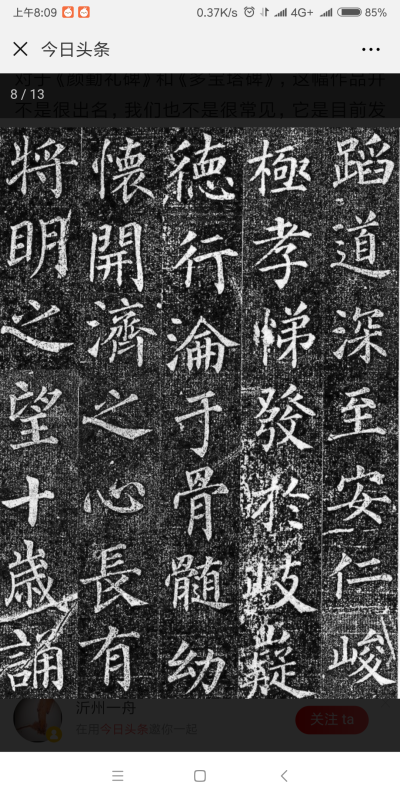 上午8:09
0.37K/s
4G+
85%
今日头条
对于《颜勤礼碑》和《多宝塔碑》，这幅作品并
不是很出名，我们也不是很常见，它是目前发
8 / 13
蹈道深至安仁峻
極孝悌發於岐嶷
德行淪于骨髓幼
懷開濟之心長有
將明之望十歳誦
沂州一舟
在用今日头条跟你一起
关注 ta